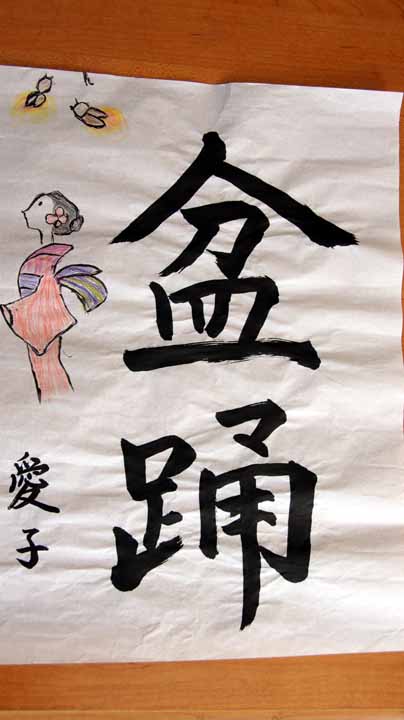 盆踊
愛子